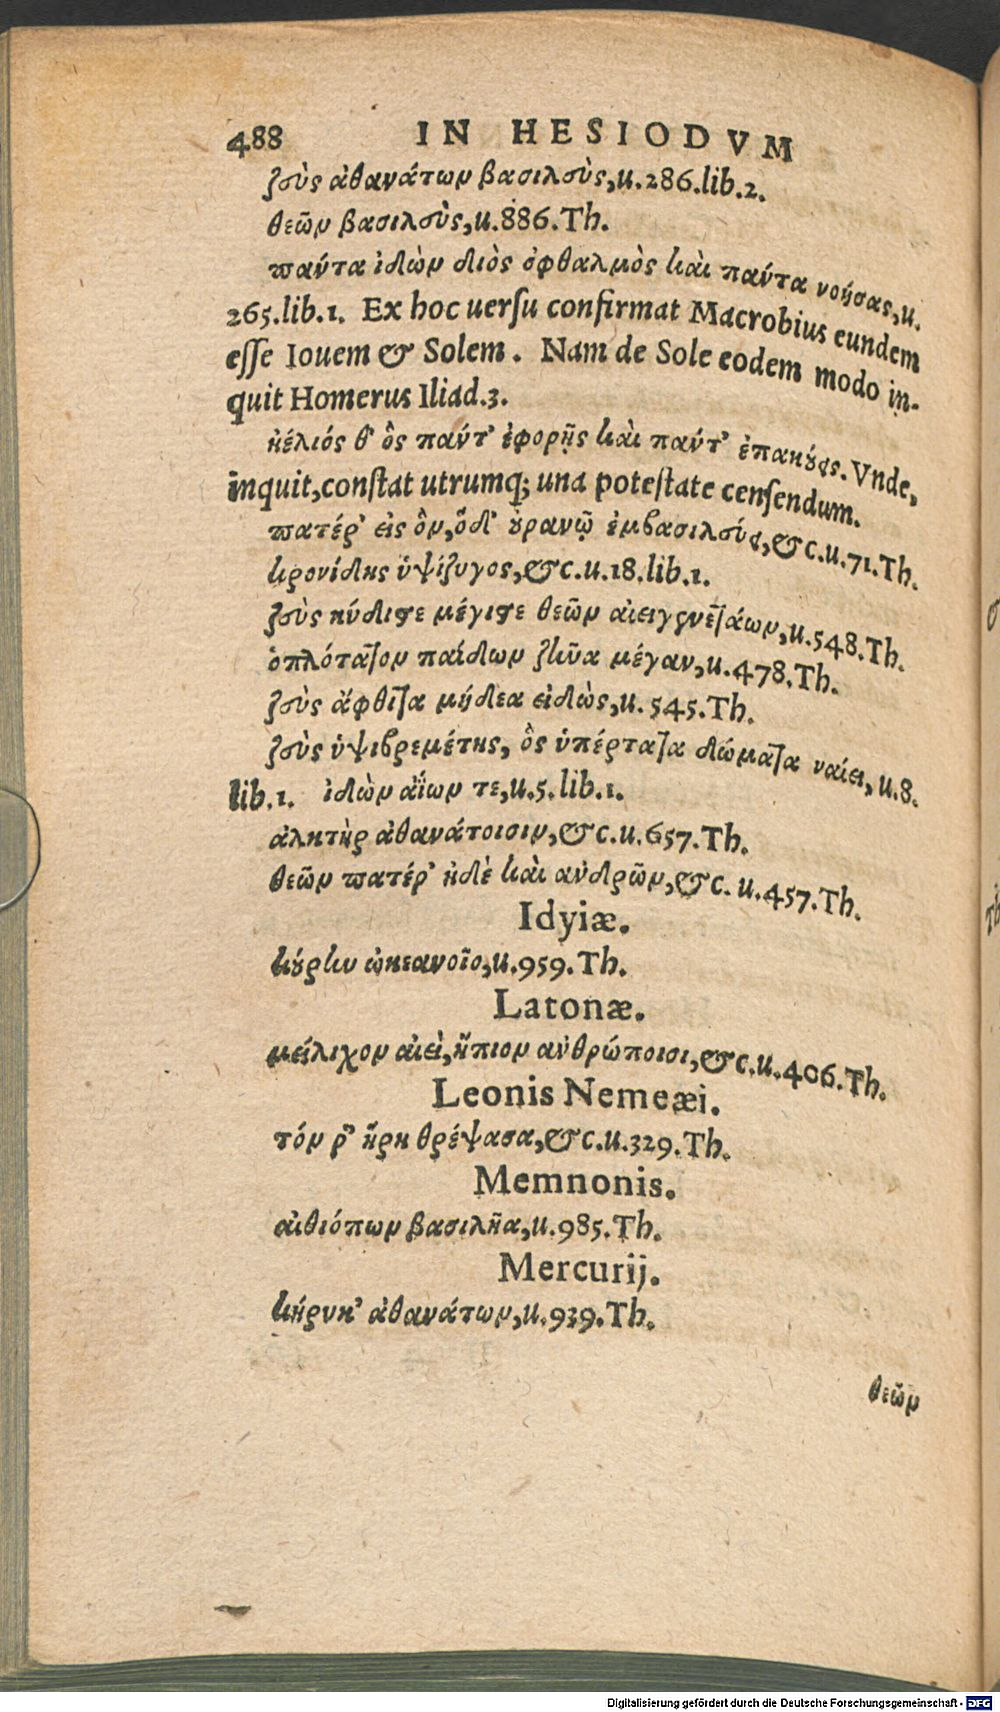 488 IN HESIODVM
ζεὺς ἀθανάτων βασιλεὺς, u.286.lib.2.
θεῶν βασιλεὺς, u.886.Th.
παντα ἰδὼν διὸς ὀφθαλμὸς καὶ παντα νοήσας, u.
265.lib.1. Ex hoc uersu confirmat Macrobius eundem
esse Iouem & Solem. Nam de Sole eodem modo in-
quit Homerus Iliad.3.
ἠέλιός θ' ὃς πάντ' ἐφορῇς καὶ πάντ' ἐπακούεις. Vnde,
inquit, constat utrumq; una potestate censendum.
πατέρ' εἰς ὃν, ὅδ' οὐρανῷ ἐμβασιλεύει, &c.u.71.Th.
κρονίδης ὑψίζυγος, &c.u.18.lib.1.
ζεὺς κύδιστε μέγιστε θεῶν αἰειγενετάων, u.548.Th.
ὁπλότατον παίδων ζῆνα μέγαν, u.478.Th.
ζεὺς ἄφθιτα μήδεα εἰδὼς, u.545.Th.
ζεὺς ὑψιβρεμέτης, ὃς ὑπέρτατα δώματα ναίει, u.8.
lib.1. ἰδὼν ἀΐων τε, u.5.lib.1.
ἀλκτὴρ ἀθανάτοισιν, &c.u.657.Th.
θεῶν πατέρ' ἠδὲ καὶ ανδρῶν, &c. u.457.Th.
Idyiæ.
κούρην ὠκεανοῖο, u.959.Th.
Latonæ.
μείλιχον αἰεὶ, ἤπιον ανθρώποισι, &c.u.406.Th.
Leonis Nemeæi.
τόν ῥ' ἥρη θρέψασα, &c.u.329.Th.
Memnonis.
αἰθιόπων βασιλῆα, u.985.Th.
Mercurij.
κήρυκ' ἀθανάτων, u.939.Th.
θεῶν
Digitalisierung gefördert durch die Deutsche Forschungsgemeinschaft - DFG